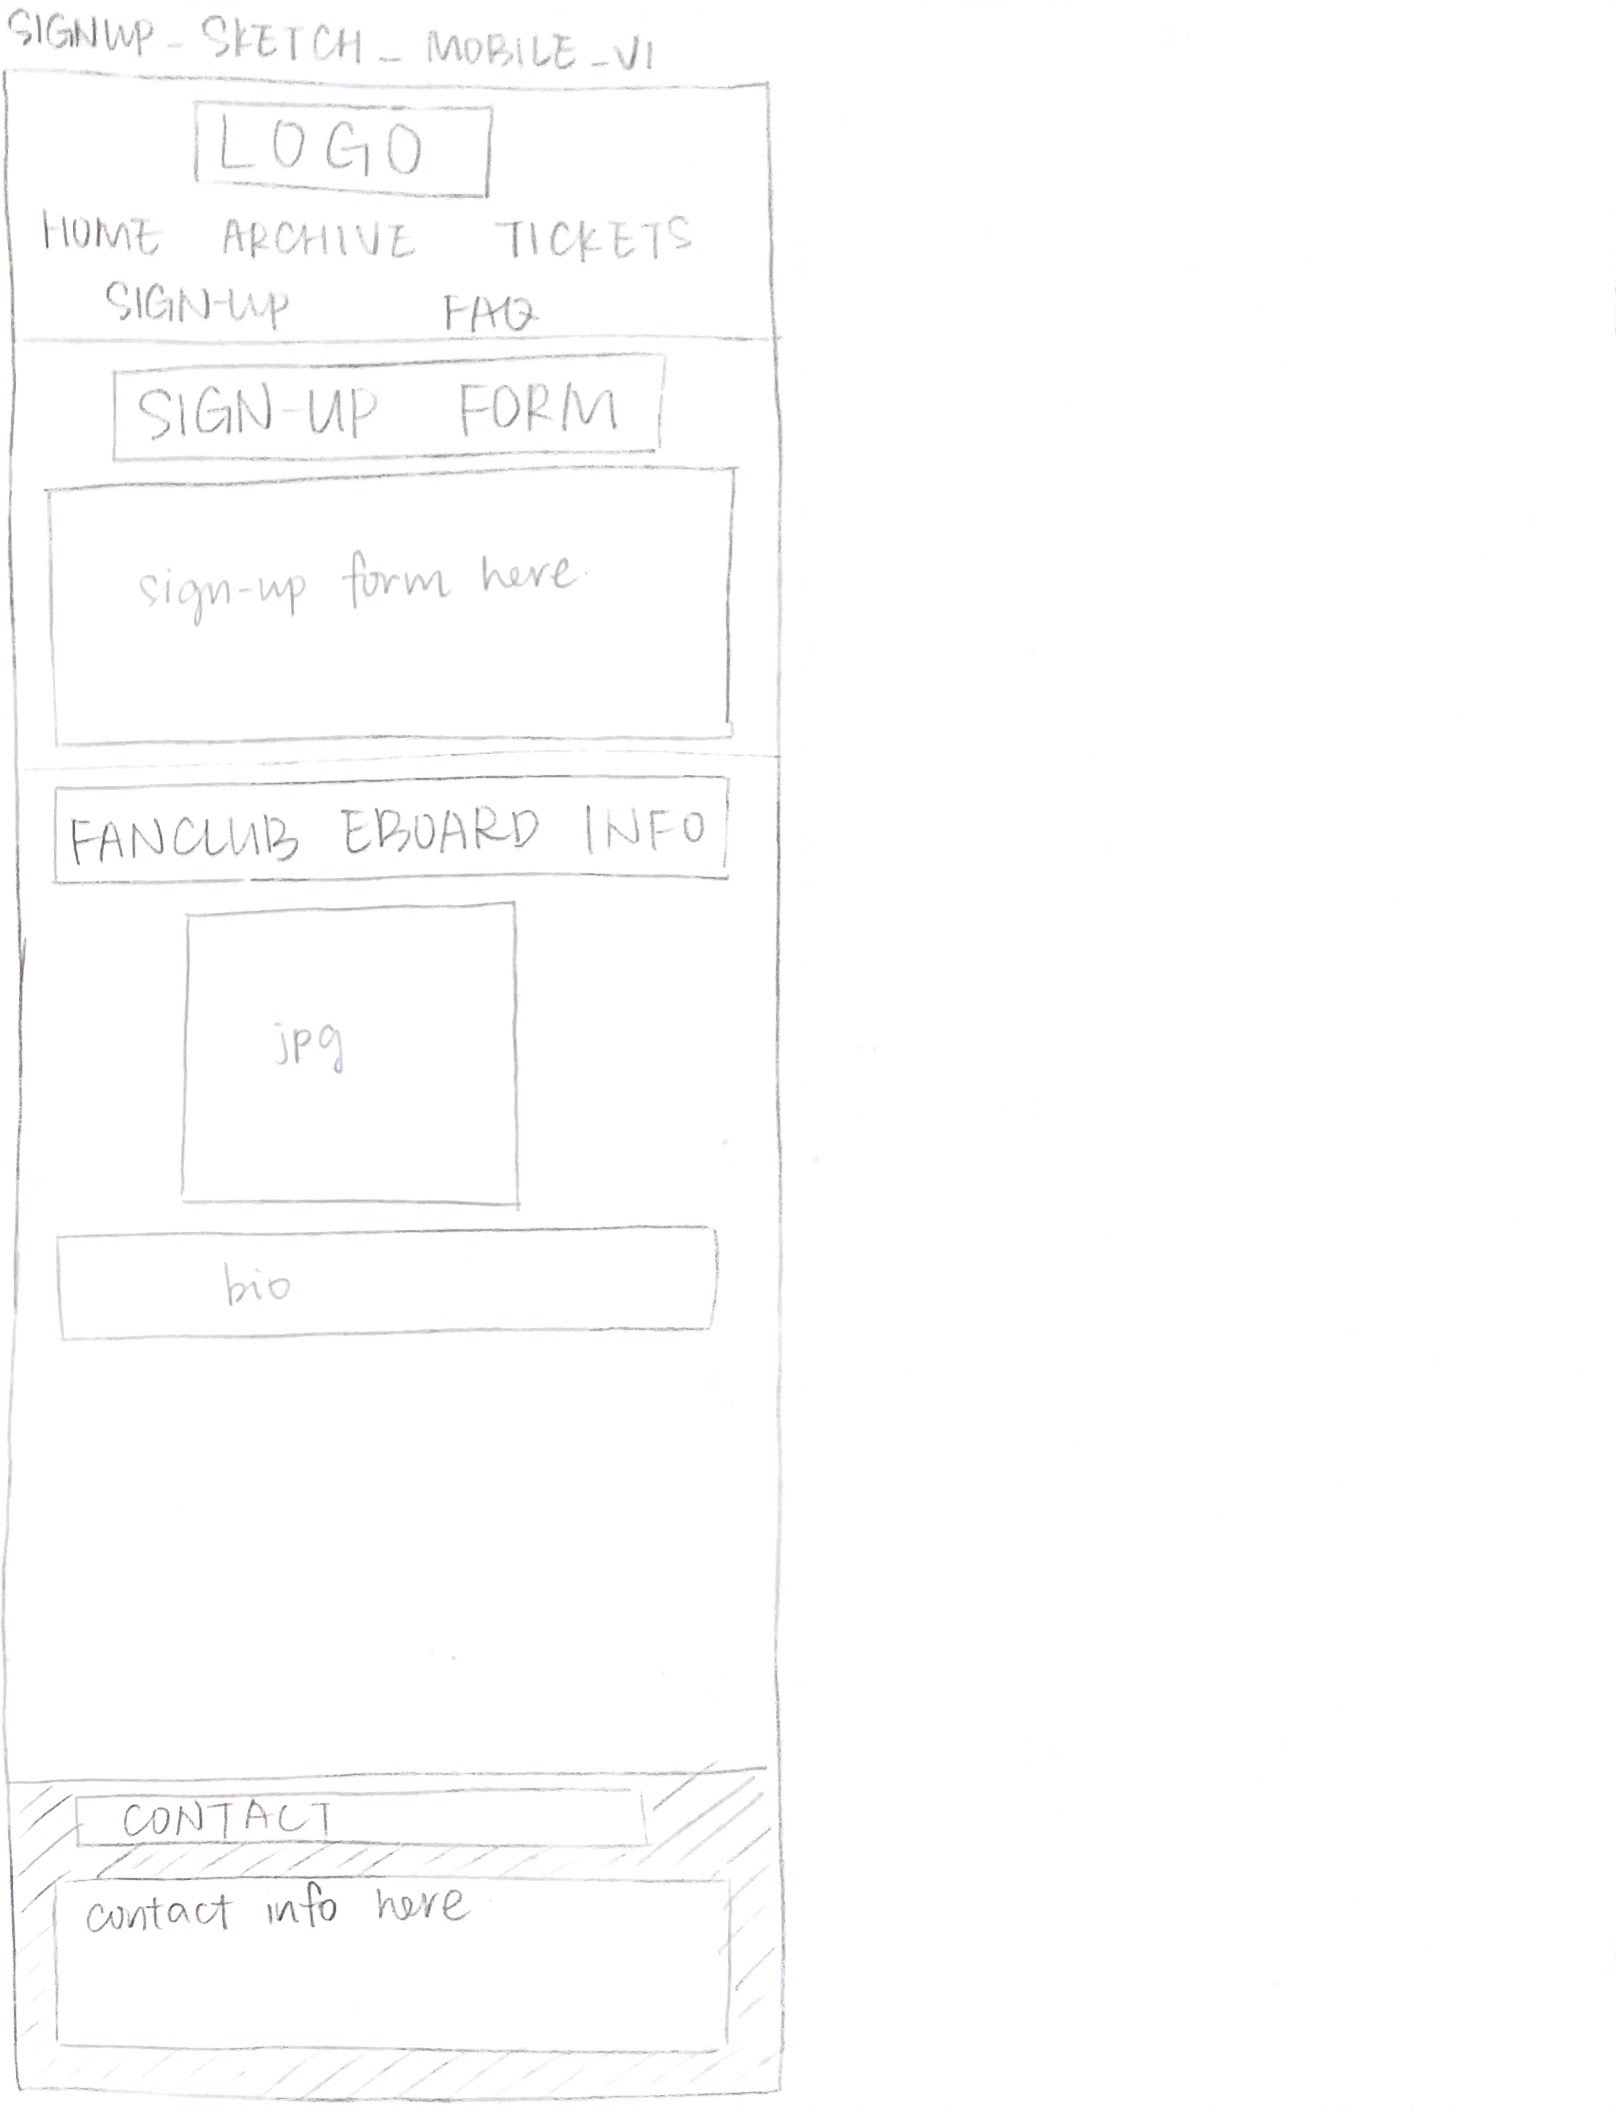 SIGNUP_SKETCH_MOBILE_V1
LOGO
HOME ARCHIVE TICKETS
SIGN-UP FAQ
SIGN-UP FORM
sign-up form here
FANCLUB EBOARD INFO
jpg
bio
CONTACT
contact info here